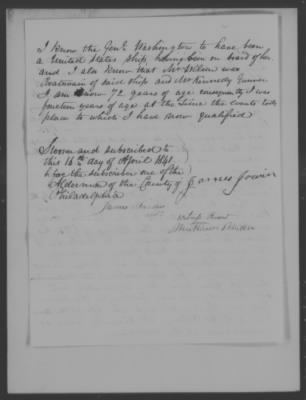 I know the Genl. Washington to have been
a United States ship, having been on board of her.
and I also know that Mr Wilson was
Boatswain of said ship and Mr Kennedy Gunner
I am now 72 years of age consequently I was
fourteen years of age at the time the events took
place to which I have now qualified
Sworn and subscribed to
this 16th day of April 1841
before the subscriber one of the
Aldermen of the County of
Philadelphia
James